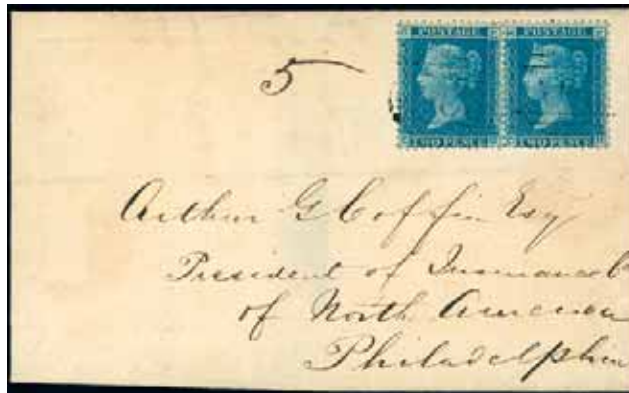 POSTAGE POSTAGE
TWO PENCE TWO PENCE
5
Arthur G Coffin Esq
President of Insurance Co
of North America
Philadelphia